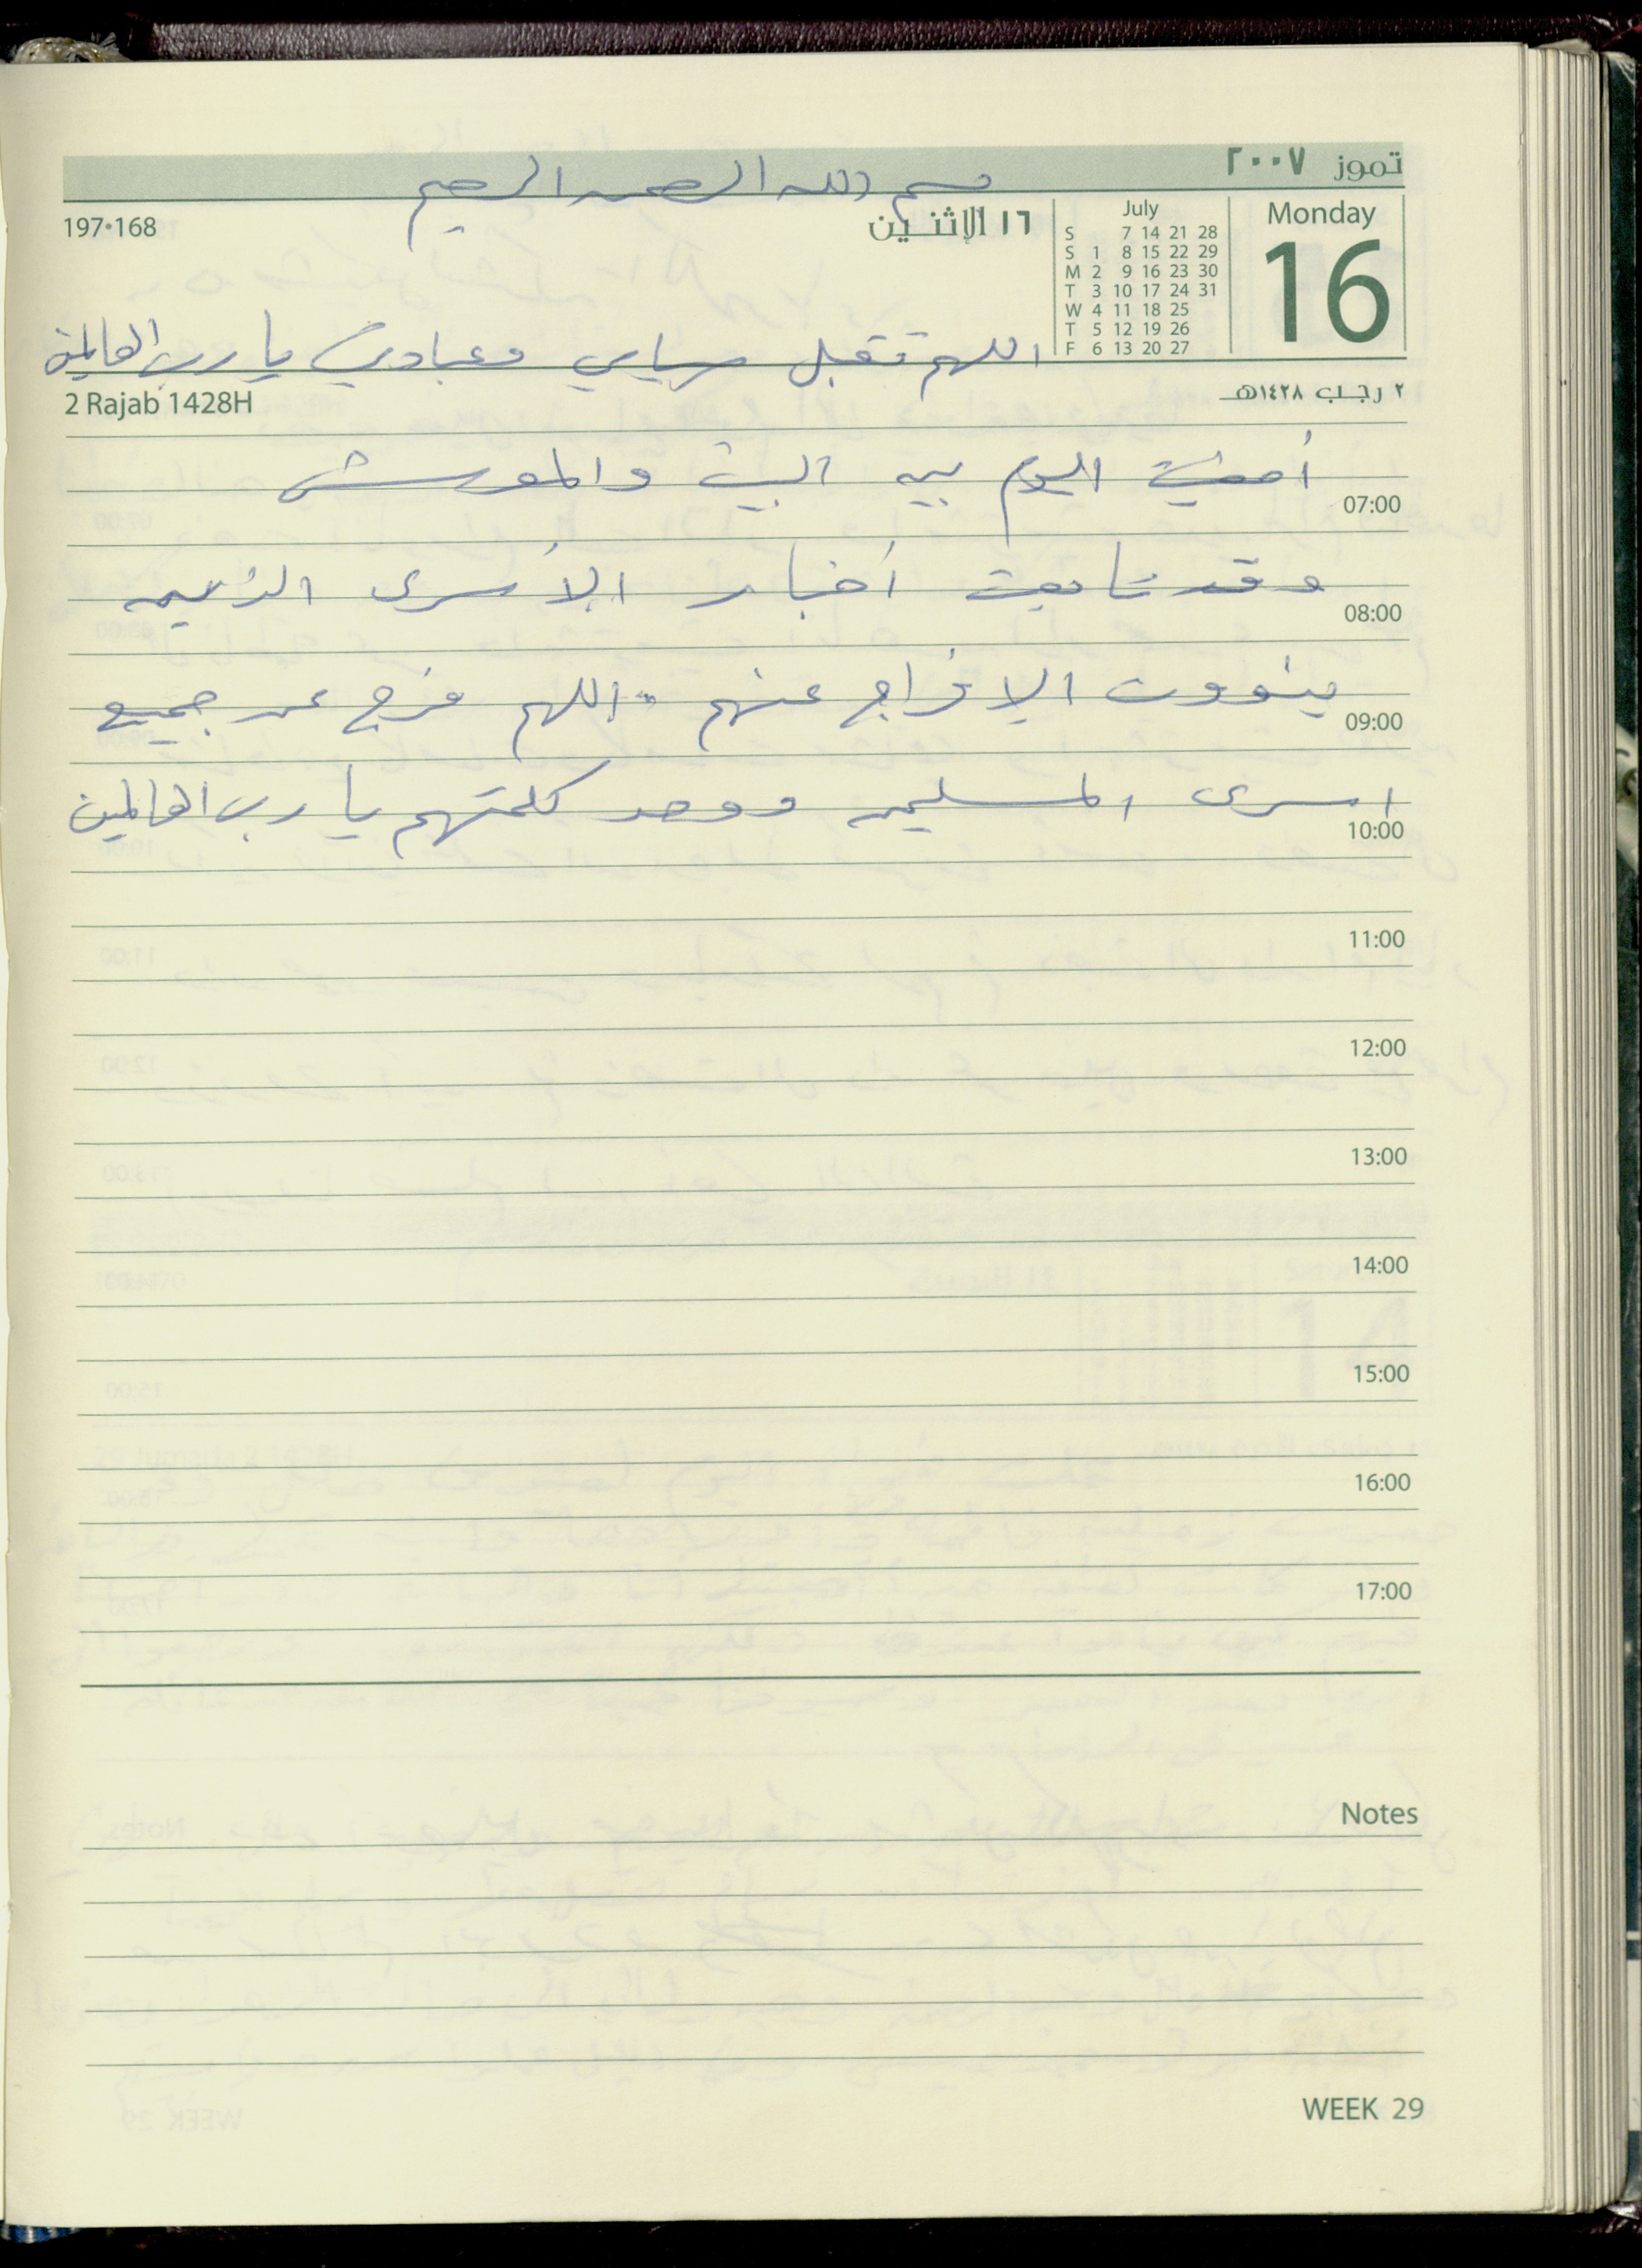 تموز ٢٠٠٧
بسم الله الرحمن الرحيم
Monday
16
July
S 7 14 21 28
S 1 8 15 22 29
M 2 9 16 23 30
T 3 10 17 24 31
W 4 11 18 25
T 5 12 19 26
F 6 13 20 27
١٦ الإثنـين
197•168
اللهم تقبل صيامي وعبادتي يا رب العالمين
٢ رجب ١٤٢٨هـ
2 Rajab 1428H
أمضيت اليوم بين البيت والمعرش
07:00
وقد تابعت أخبار الأسرى الذين
08:00
ينوون الإفراج عنهم. اللهم فرج عن جميع
09:00
اسرى المسلمين ووحد كلمتهم يا رب العالمين
10:00
11:00
12:00
13:00
14:00
15:00
16:00
17:00
Notes
WEEK 29